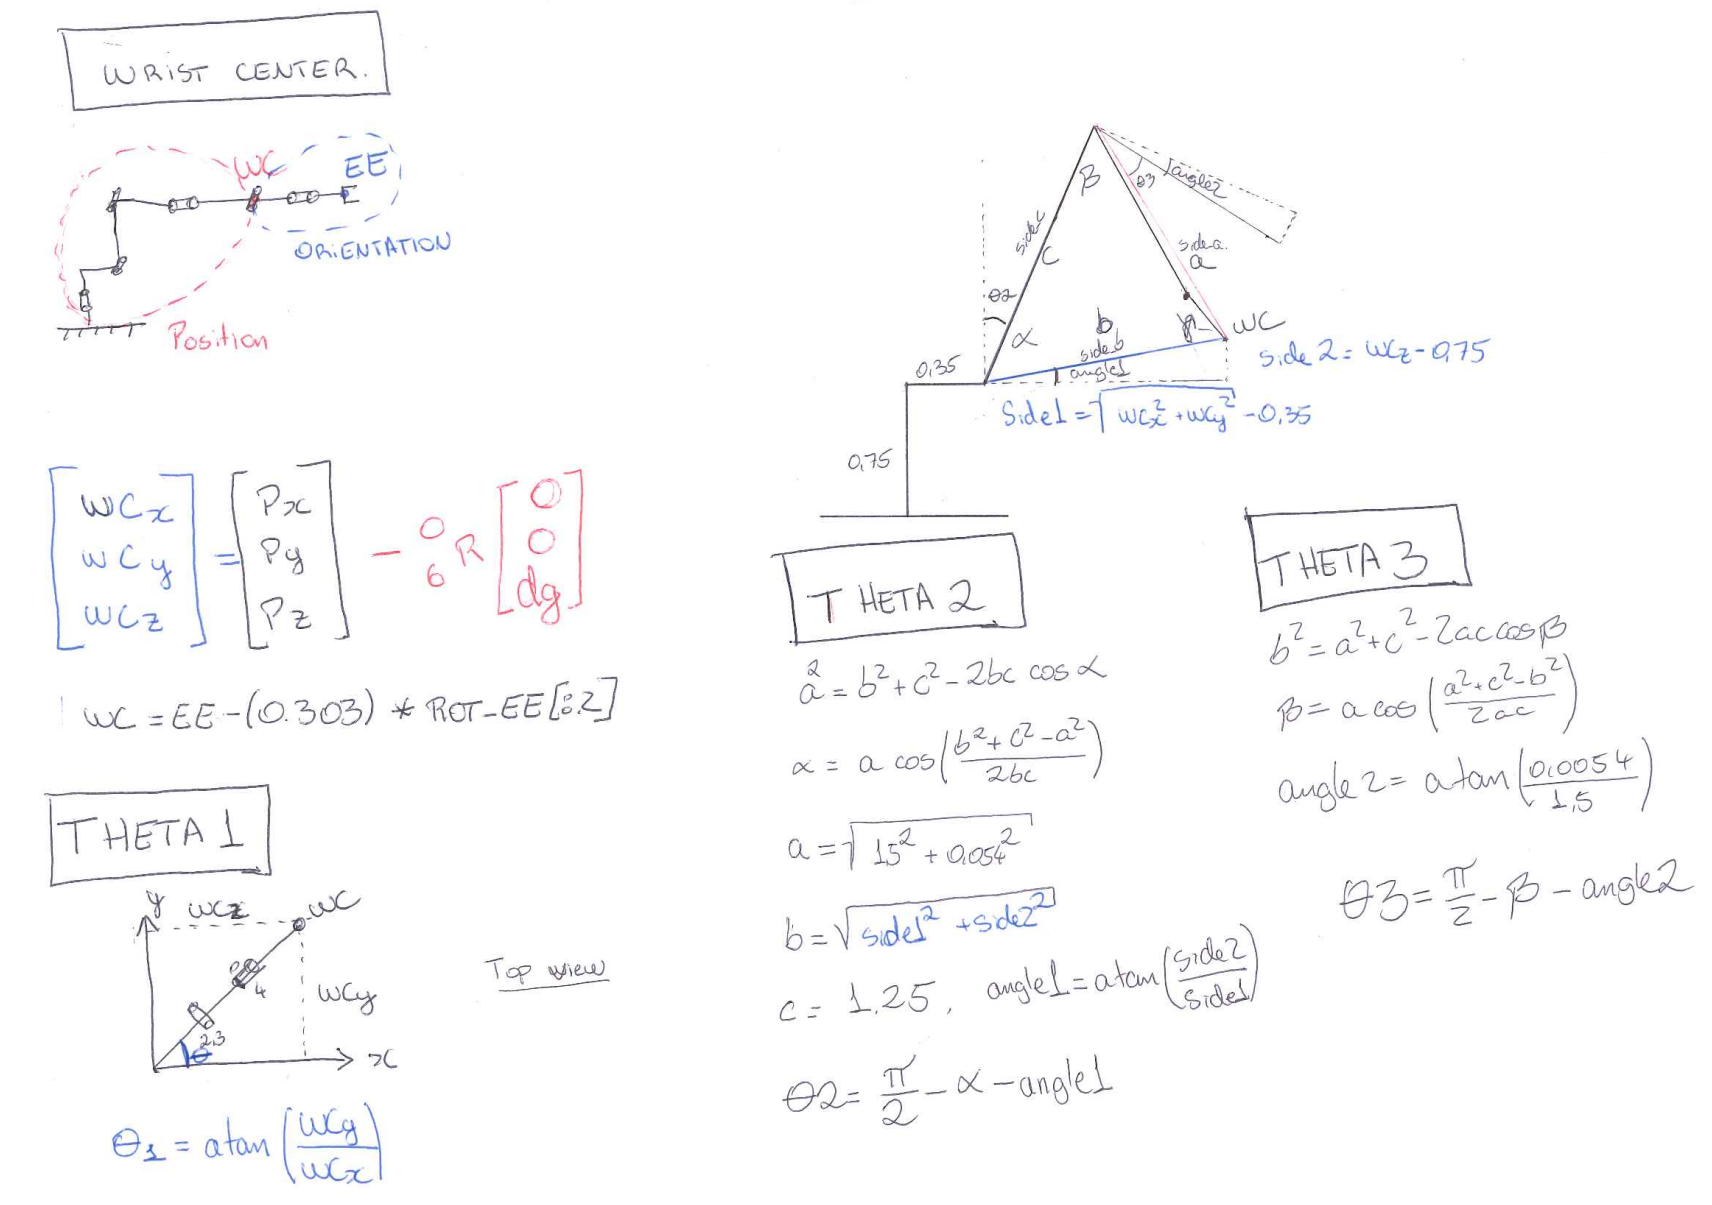 WRIST CENTER.
WC
EE
ORIENTATION
Position
[WCx WCy WCz] = [Px Py Pz] - ⁰₆R [0 0 dg]
WC = EE - (0.303) * ROT_EE[:,2]
THETA 1
y
WCz
WC
4
WCy
2,3
θ
x
Top view
θ1 = atan(WCy/WCx)
β
θ3
angle2
side c
C
side a.
a
θ2
α
b
side b
angle1
γ
WC
0,35
side 2 = WCz - 0,75
Side1 = √(WCx² + WCy²) - 0,35
0,75
THETA 2
a² = b² + c² - 2bc cos α
α = a cos((b² + c² - a²)/2bc)
a = √(1.5² + 0.054²)
b = √(side1² + side2²)
c = 1.25, angle1 = atan(side2/side1)
θ2 = π/2 - α - angle1
THETA 3
b² = a² + c² - 2ac cos β
β = a cos((a² + c² - b²)/2ac)
angle 2 = atan(0,0054/1,5)
θ3 = π/2 - β - angle2